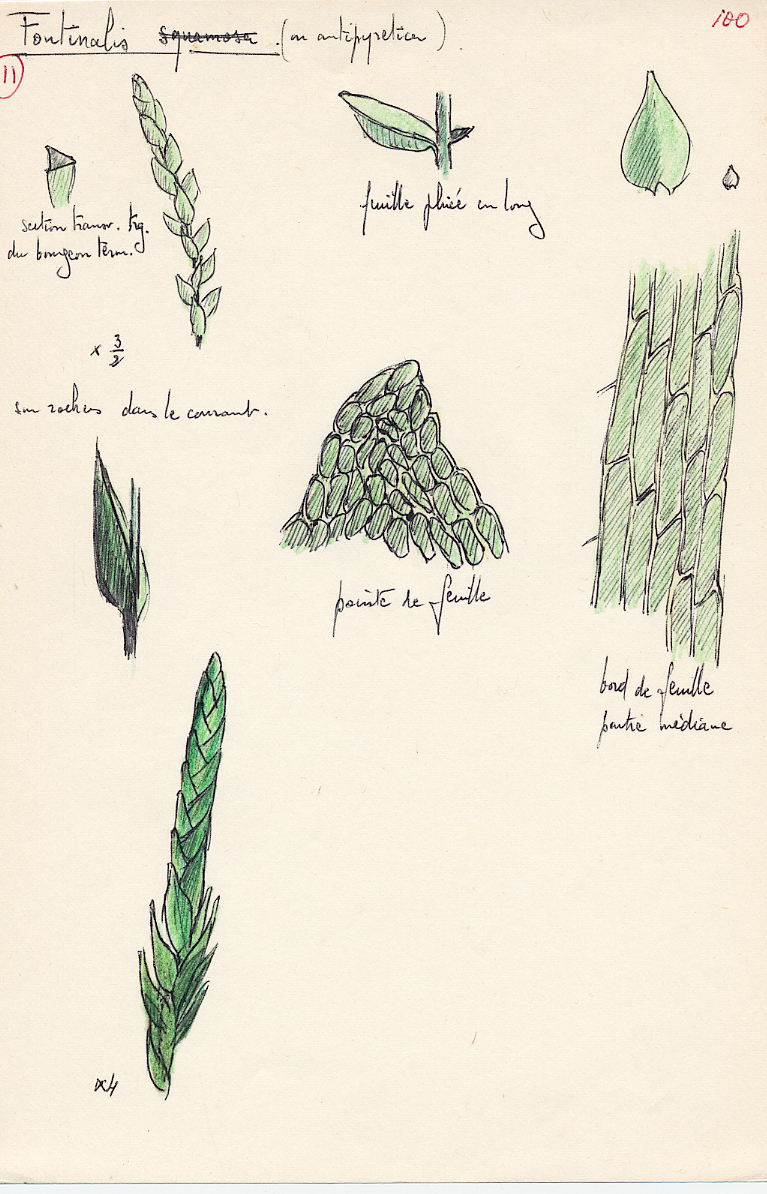 Fontinalis squamosa. (ou antipyretica)
100
11
section transv. trg.
du bourgeon term.
feuille pliée en long
x 3/2
sur rochers dans le courant.
pointe de feuille
bord de feuille
partie médiane
x4